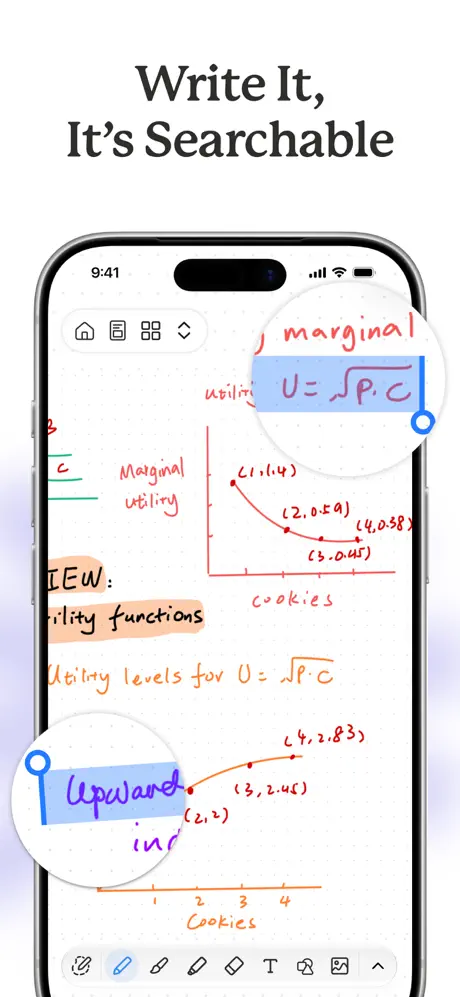 Write It,
It's Searchable
9:41
marginal
utility
U = √P.C
3
C
Marginal
utility
(1,1.4)
(2,0.59)
(3,0.45)
(4,0.38)
cookies
IEW:
ility functions
Utility levels for U = √P.C
Upward
(2,2)
(3,2.45)
(4,2.83)
1 2 3 4
Cookies
T